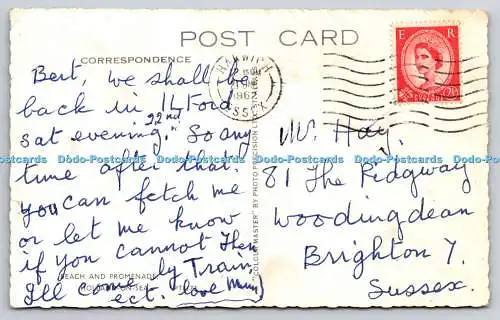 POST CARD
CORRESPONDENCE
Bert, we shall be
back in Ilford
sat evening 22nd. So any
time after that.
you can fetch me
or let me know
if you cannot then
I'll come by Train.
ect. love Mum
BEACH AND PROMENADE
HOLLAND-ON-SEA
HARWICH
1962
ESSEX
E R
2½D
Mr. Hay,
81 The Ridgway
Woodingdean
Brighton 7.
Sussex.
Dodo-Postcards Dodo-Postcards Dodo-Postcards Dodo-Postcards Dodo-Postcards Dodo-Postcards